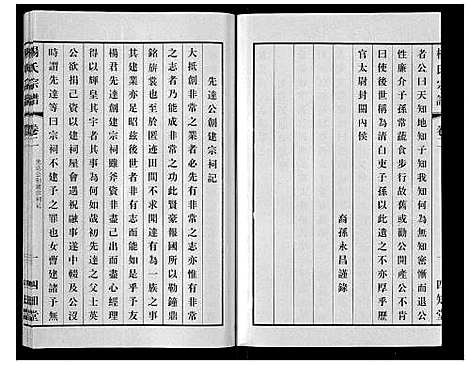 楊氏宗譜
卷二
四知堂
者公曰天知地知子知我知何謂無知密慚而退公
性廉介子孫常蔬食步行故舊或勸公開產公不肯
曰使後世稱為清白吏子孫以此遺之不亦厚乎歷
官太尉封關內侯
裔孫永昌謹錄
先達公創建宗祠記
大抵創非常之業者必先有非常之志亦惟有非常
之志者乃能成非常之功此賢豪報國所以勒鐘鼎
銘旂裳也至於匿迹田間不求聞達有為一族之事
其建業亦足昭茲後世者非有志而能如是乎予友
楊君先達創建宗祠雖斧資非盡己出而盡心經理
得以輝皇其宇者其事為何如哉初先達之父士美
公欲捐己資以建祠屋會遇祝融事遂中輟及公沒
時謂先達等曰宗祠不建予之罪也女曹建諸予無
楊氏宗譜
卷二
先達公創建宗祠記
一
四知堂